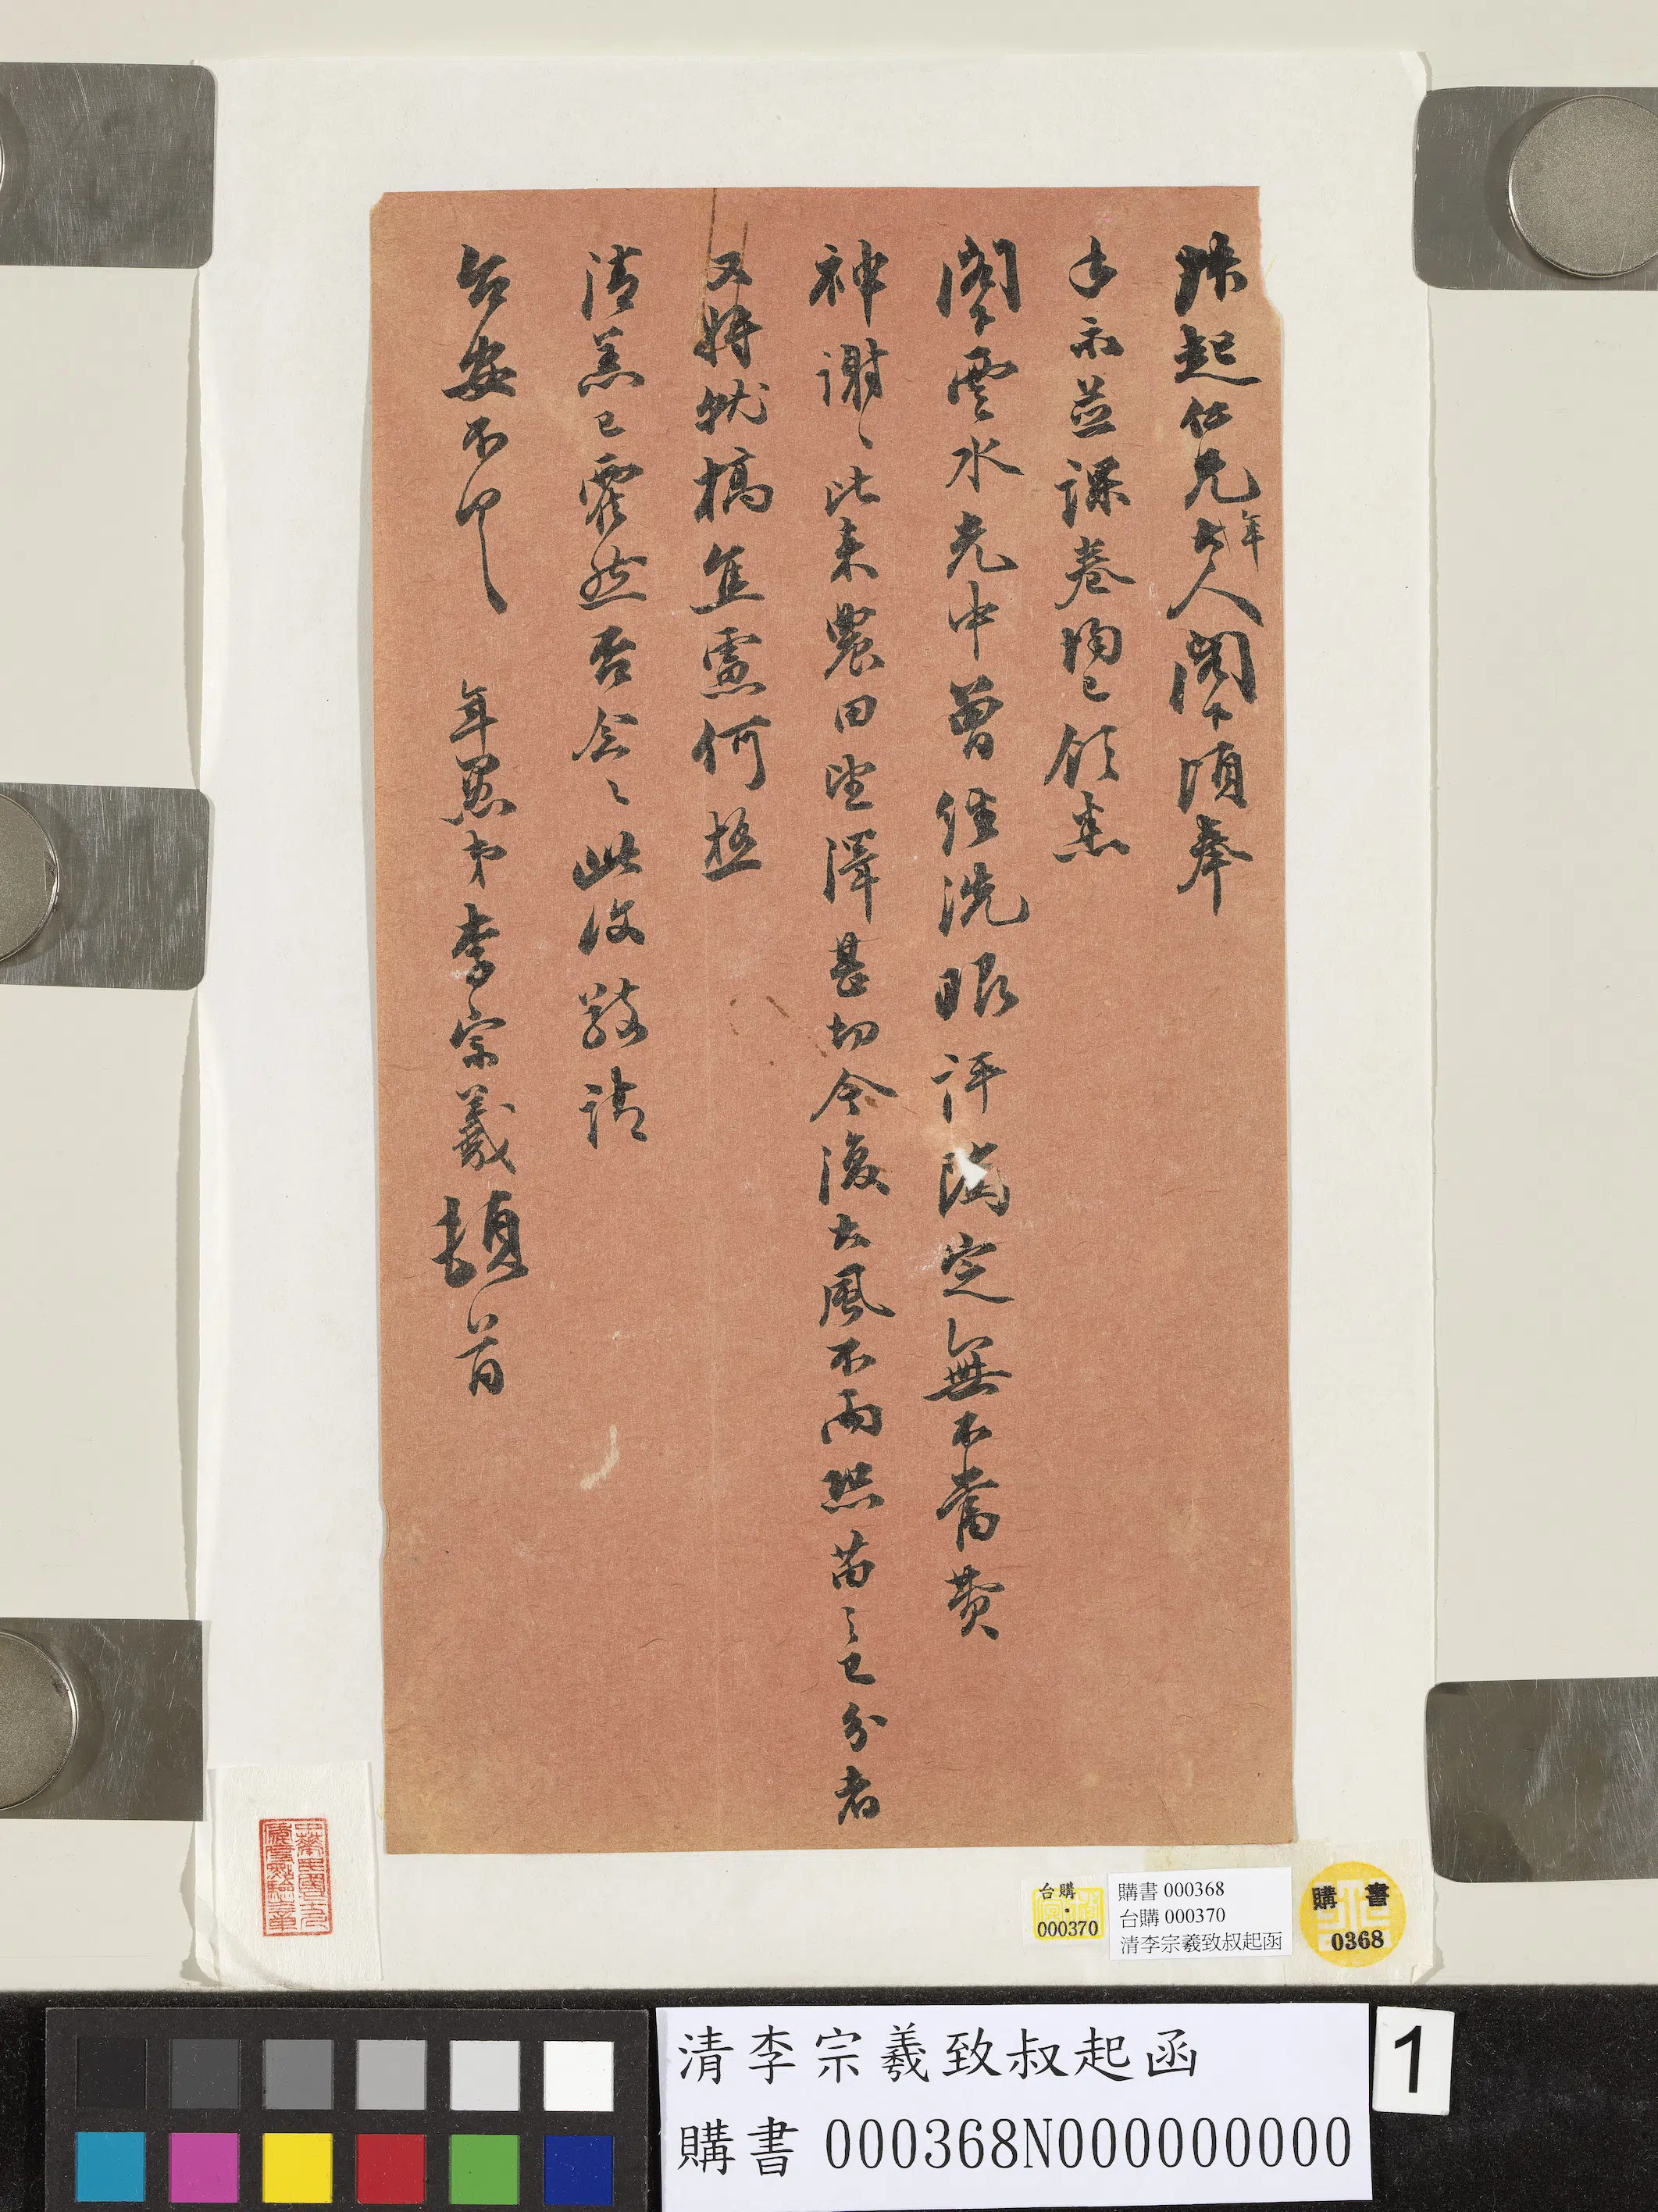 叔起仁兄年大人閣下頃奉
手示並課卷均已領悉
閣下雲水光中曾經洗眼評隲定無不當費
神謝〻比來農田望澤甚切今復大風不雨恐苗之已分者
又將就槁焦慮何極
清恙已霍然否念〻此復敬請
台安不 年愚弟李宗羲頓首
台購
000370
購書 000368
台購 000370
清李宗羲致叔起函
購書
0368
清李宗羲致叔起函
購書 000368N000000000
1